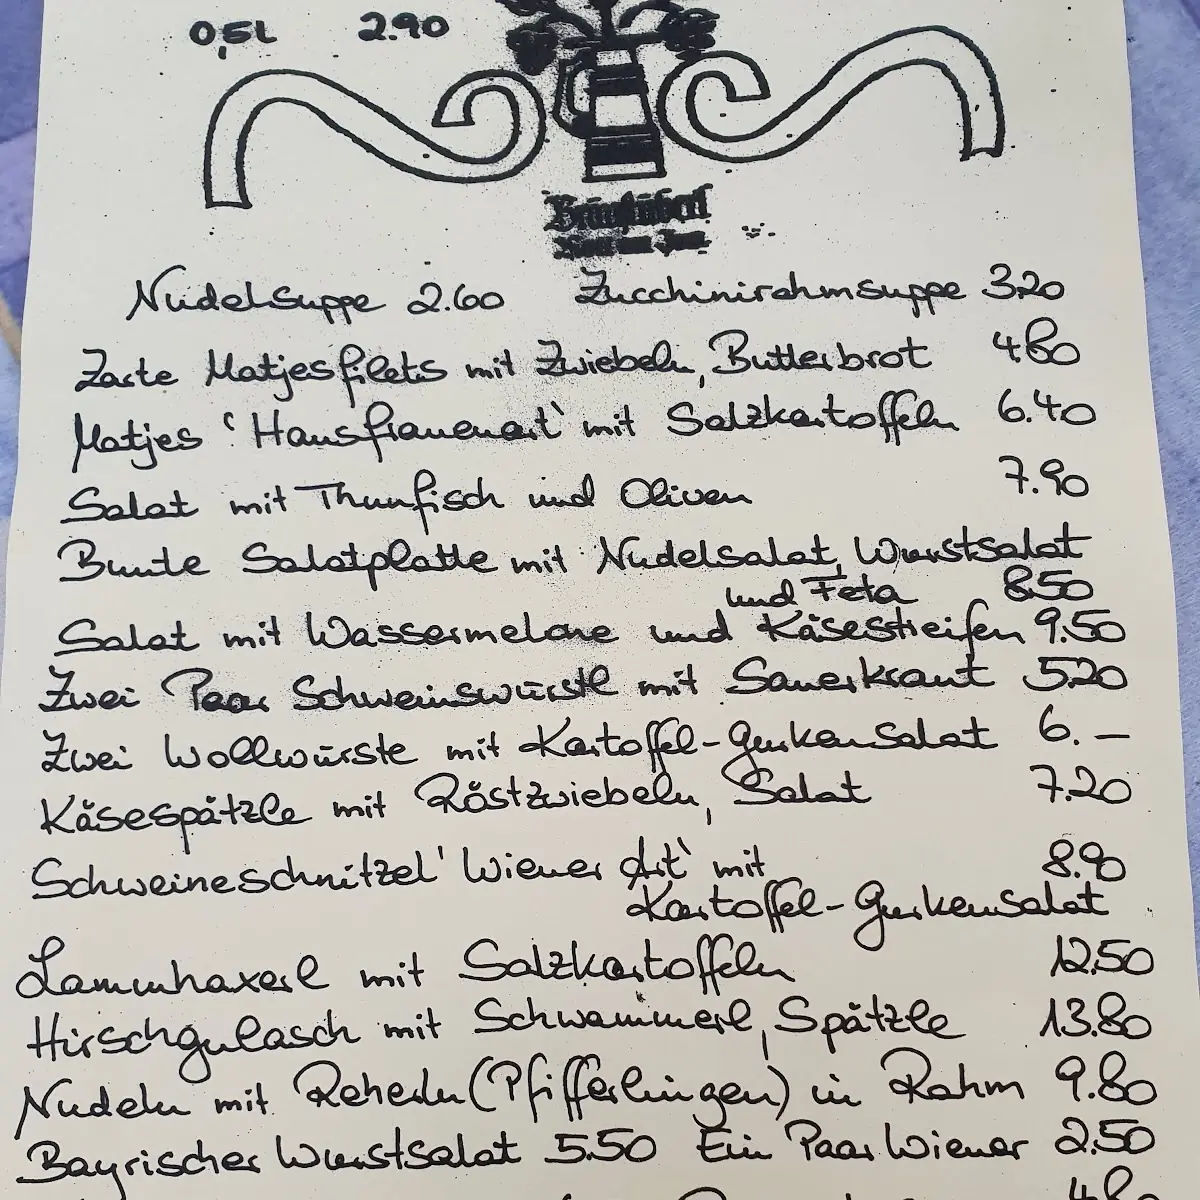 0,5L 2.90
Bräustüberl
Nudelsuppe 2.60 Zucchinirahmsuppe 3.20
Zarte Matjesfilets mit Zwiebeln, Butterbrot 4.80
Matjes 'Hausfrauenart' mit Salzkartoffeln 6.40
Salat mit Thunfisch und Oliven 7.90
Bunte Salatplatte mit Nudelsalat, Wurstsalat
und Feta 8.50
Salat mit Wassermelone und Käsestreifen 9.50
Zwei Paar Schweinswürstl mit Sauerkraut 5.20
Zwei Wollwürste mit Kartoffel-Gurkensalat 6.–
Käsespätzle mit Röstzwiebeln, Salat 7.20
Schweineschnitzel 'Wiener Art' mit 8.90
Kartoffel-Gurkensalat
Lammhaxerl mit Salzkartoffeln 12.50
Hirschgulasch mit Schwammerl, Spätzle 13.80
Nudeln mit Reherln (Pfifferlingen) in Rahm 9.80
Bayrischer Wurstsalat 5.50 Ein Paar Wiener 2.50